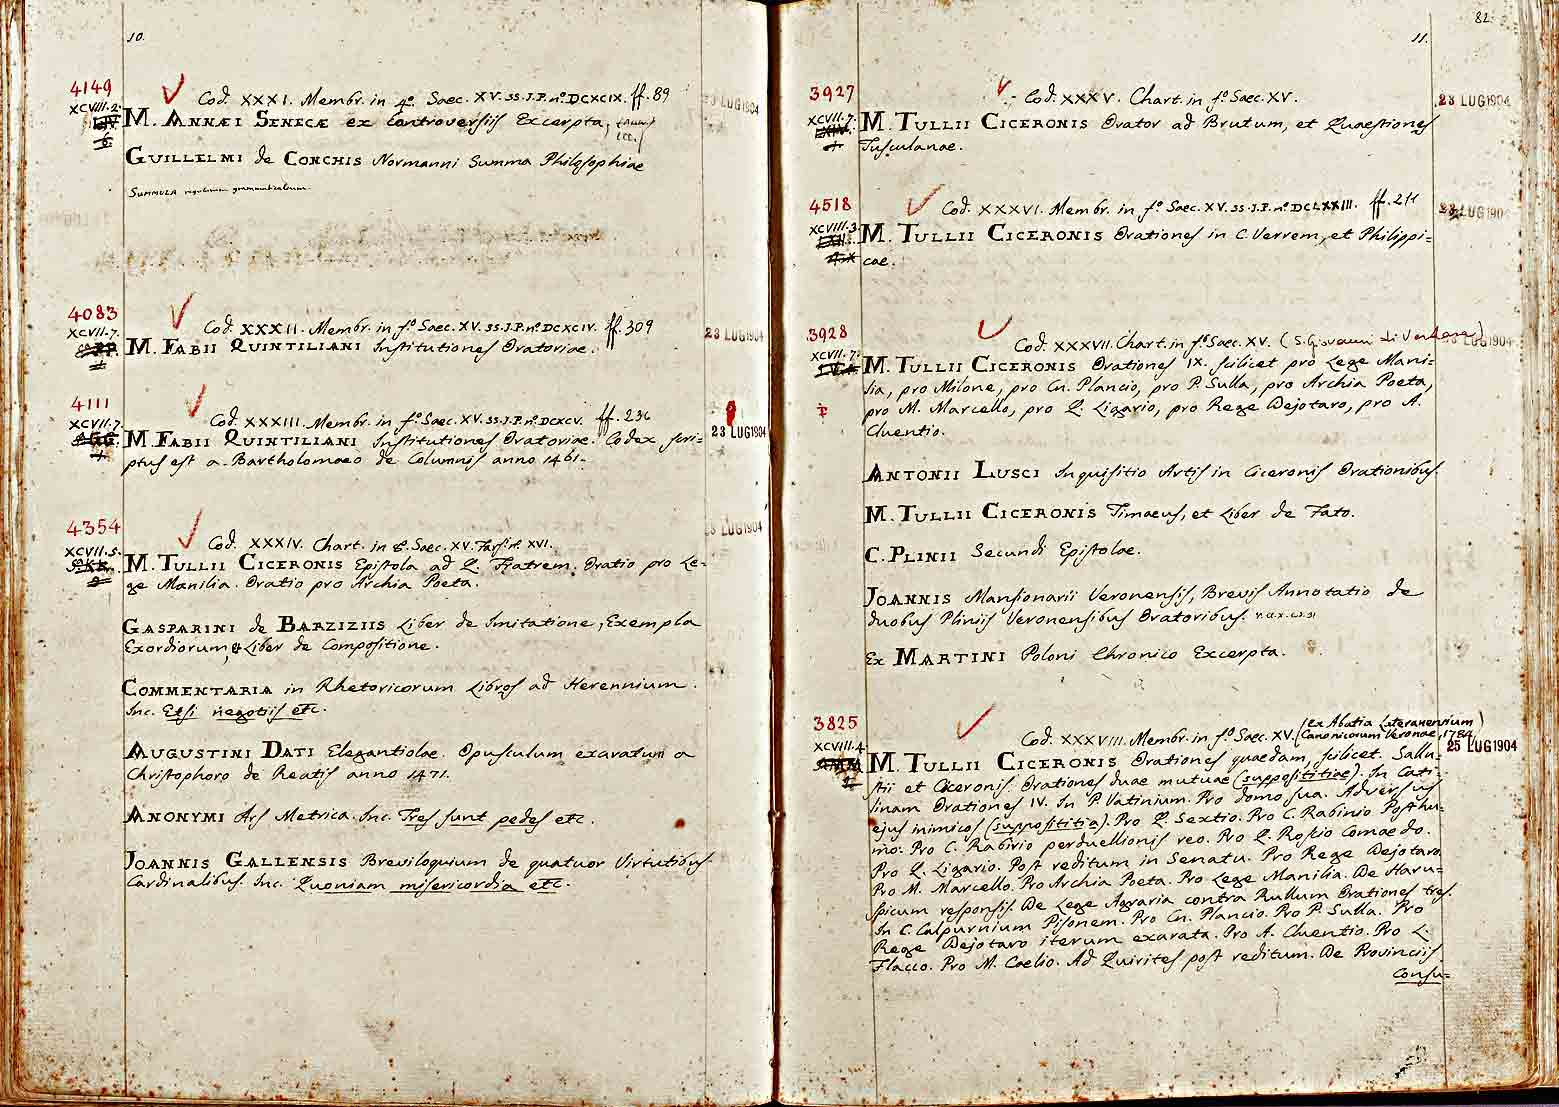 10.
4149
XCVIII.2.
Cod. XXXI. Membr. in 4º. Saec. XV. ss. J.P. nº. DCXCIX. ff. 89
M. ANNÆI SENECÆ ex Controversiis Excerpta,
GUILLELMI de CONCHIS Normanni Summa Philosophiae
SUMMULA regularum grammaticalium.
23 LUG 1904
4083
XCVII.7.
Cod. XXXII. Membr. in fº. Saec. XV. ss. J.P. nº. DCXCIV. ff. 309
M. FABII QUINTILIANI Institutiones Oratoriae.
23 LUG 1904
4111
XCVII.7.
Cod. XXXIII. Membr. in fº. Saec. XV. ss. J.P. nº. DCXCV. ff. 236
M. FABII QUINTILIANI Institutiones Oratoriae. Codex scri=
ptus est a Bartholomaeo de Columnis anno 1461.
23 LUG 1904
4354
XCVII.5.
Cod. XXXIV. Chart. in 8º. Saec. XV. XVI.
M. TULLII CICERONIS Epistola ad Q. Fratrem. Oratio pro Le=
ge Manilia. Oratio pro Archia Poeta.
23 LUG 1904
GASPARINI de BARZIZIIS Liber de Imitatione, Exempla
Exordiorum, & Liber de Compositione.
COMMENTARIA in Rhetoricorum Libros ad Herennium.
Inc. Etsi negotiis etc.
AUGUSTINI DATI Elegantiolae. Opusculum exaratum a
Christophoro de Reatis anno 1471.
ANONYMI Ars Metrica. Inc. Tres sunt pedes etc.
JOANNIS GALLENSIS Breviloquium de quatuor Virtutibus
Cardinalibus. Inc. Quoniam misericordia etc.
82.
11.
3927
XCVII.7.
Cod. XXXV. Chart. in fº. Saec. XV.
M. TULLII CICERONIS Orator ad Brutum, et Quaestiones
Tusculanae.
23 LUG 1904
4518
XCVIII.3.
Cod. XXXVI. Membr. in fº. Saec. XV. ss. J.P. nº. DCLXXIII. ff. 211
M. TULLII CICERONIS Orationes in C. Verrem, et Philippi=
cae.
23 LUG 190
3928
XCVII.7.
Cod. XXXVII. Chart. in fº. Saec. XV. (S. Giovanni di Verdara)
M. TULLII CICERONIS Orationes IX. scilicet pro Lege Mani=
lia, pro Milone, pro Cn. Plancio, pro P. Sulla, pro Archia Poeta,
pro M. Marcello, pro Q. Ligario, pro Rege Dejotaro, pro A.
Cluentio.
23 LUG 1904
ANTONII LUSCI Inquisitio Artis in Ciceronis Orationibus.
M. TULLII CICERONIS Timaeus, et Liber de Fato.
C. PLINII Secundi Epistolae.
JOANNIS Mansionarii Veronensis, Brevis Annotatio de
duobus Pliniis Veronensibus Oratoribus.
Ex MARTINI Poloni Chronico Excerpta.
3825
XCVIII.4
Cod. XXXVIII. Membr. in fº. Saec. XV. (ex Abatia Lateranensium
Canonicorum Veronae, 1784)
M. TULLII CICERONIS Orationes quaedam, scilicet. Sallu=
stii et Ciceronis Orationes duae mutuae (supposititiae). In Cati=
linam Orationes IV. In P. Vatinium. Pro domo sua. Adversus
ejus inimicos (supposititia). Pro P. Sextio. Pro C. Rabirio Posthu=
mo. Pro C. Rabirio perduellionis reo. Pro Q. Roscio Comaedo.
Pro Q. Ligario. Post reditum in Senatu. Pro Rege Dejotaro.
Pro M. Marcello. Pro Archia Poeta. Pro Lege Manilia. De Haru=
spicum responsis. De Lege Agraria contra Rullum Orationes tres.
In C. Calpurnium Pisonem. Pro Cn. Plancio. Pro P. Sulla. Pro
Rege Dejotaro iterum exarata. Pro A. Cluentio. Pro L.
Flacco. Pro M. Caelio. Ad Quirites post reditum. De Provinciis
Consu=
25 LUG 1904